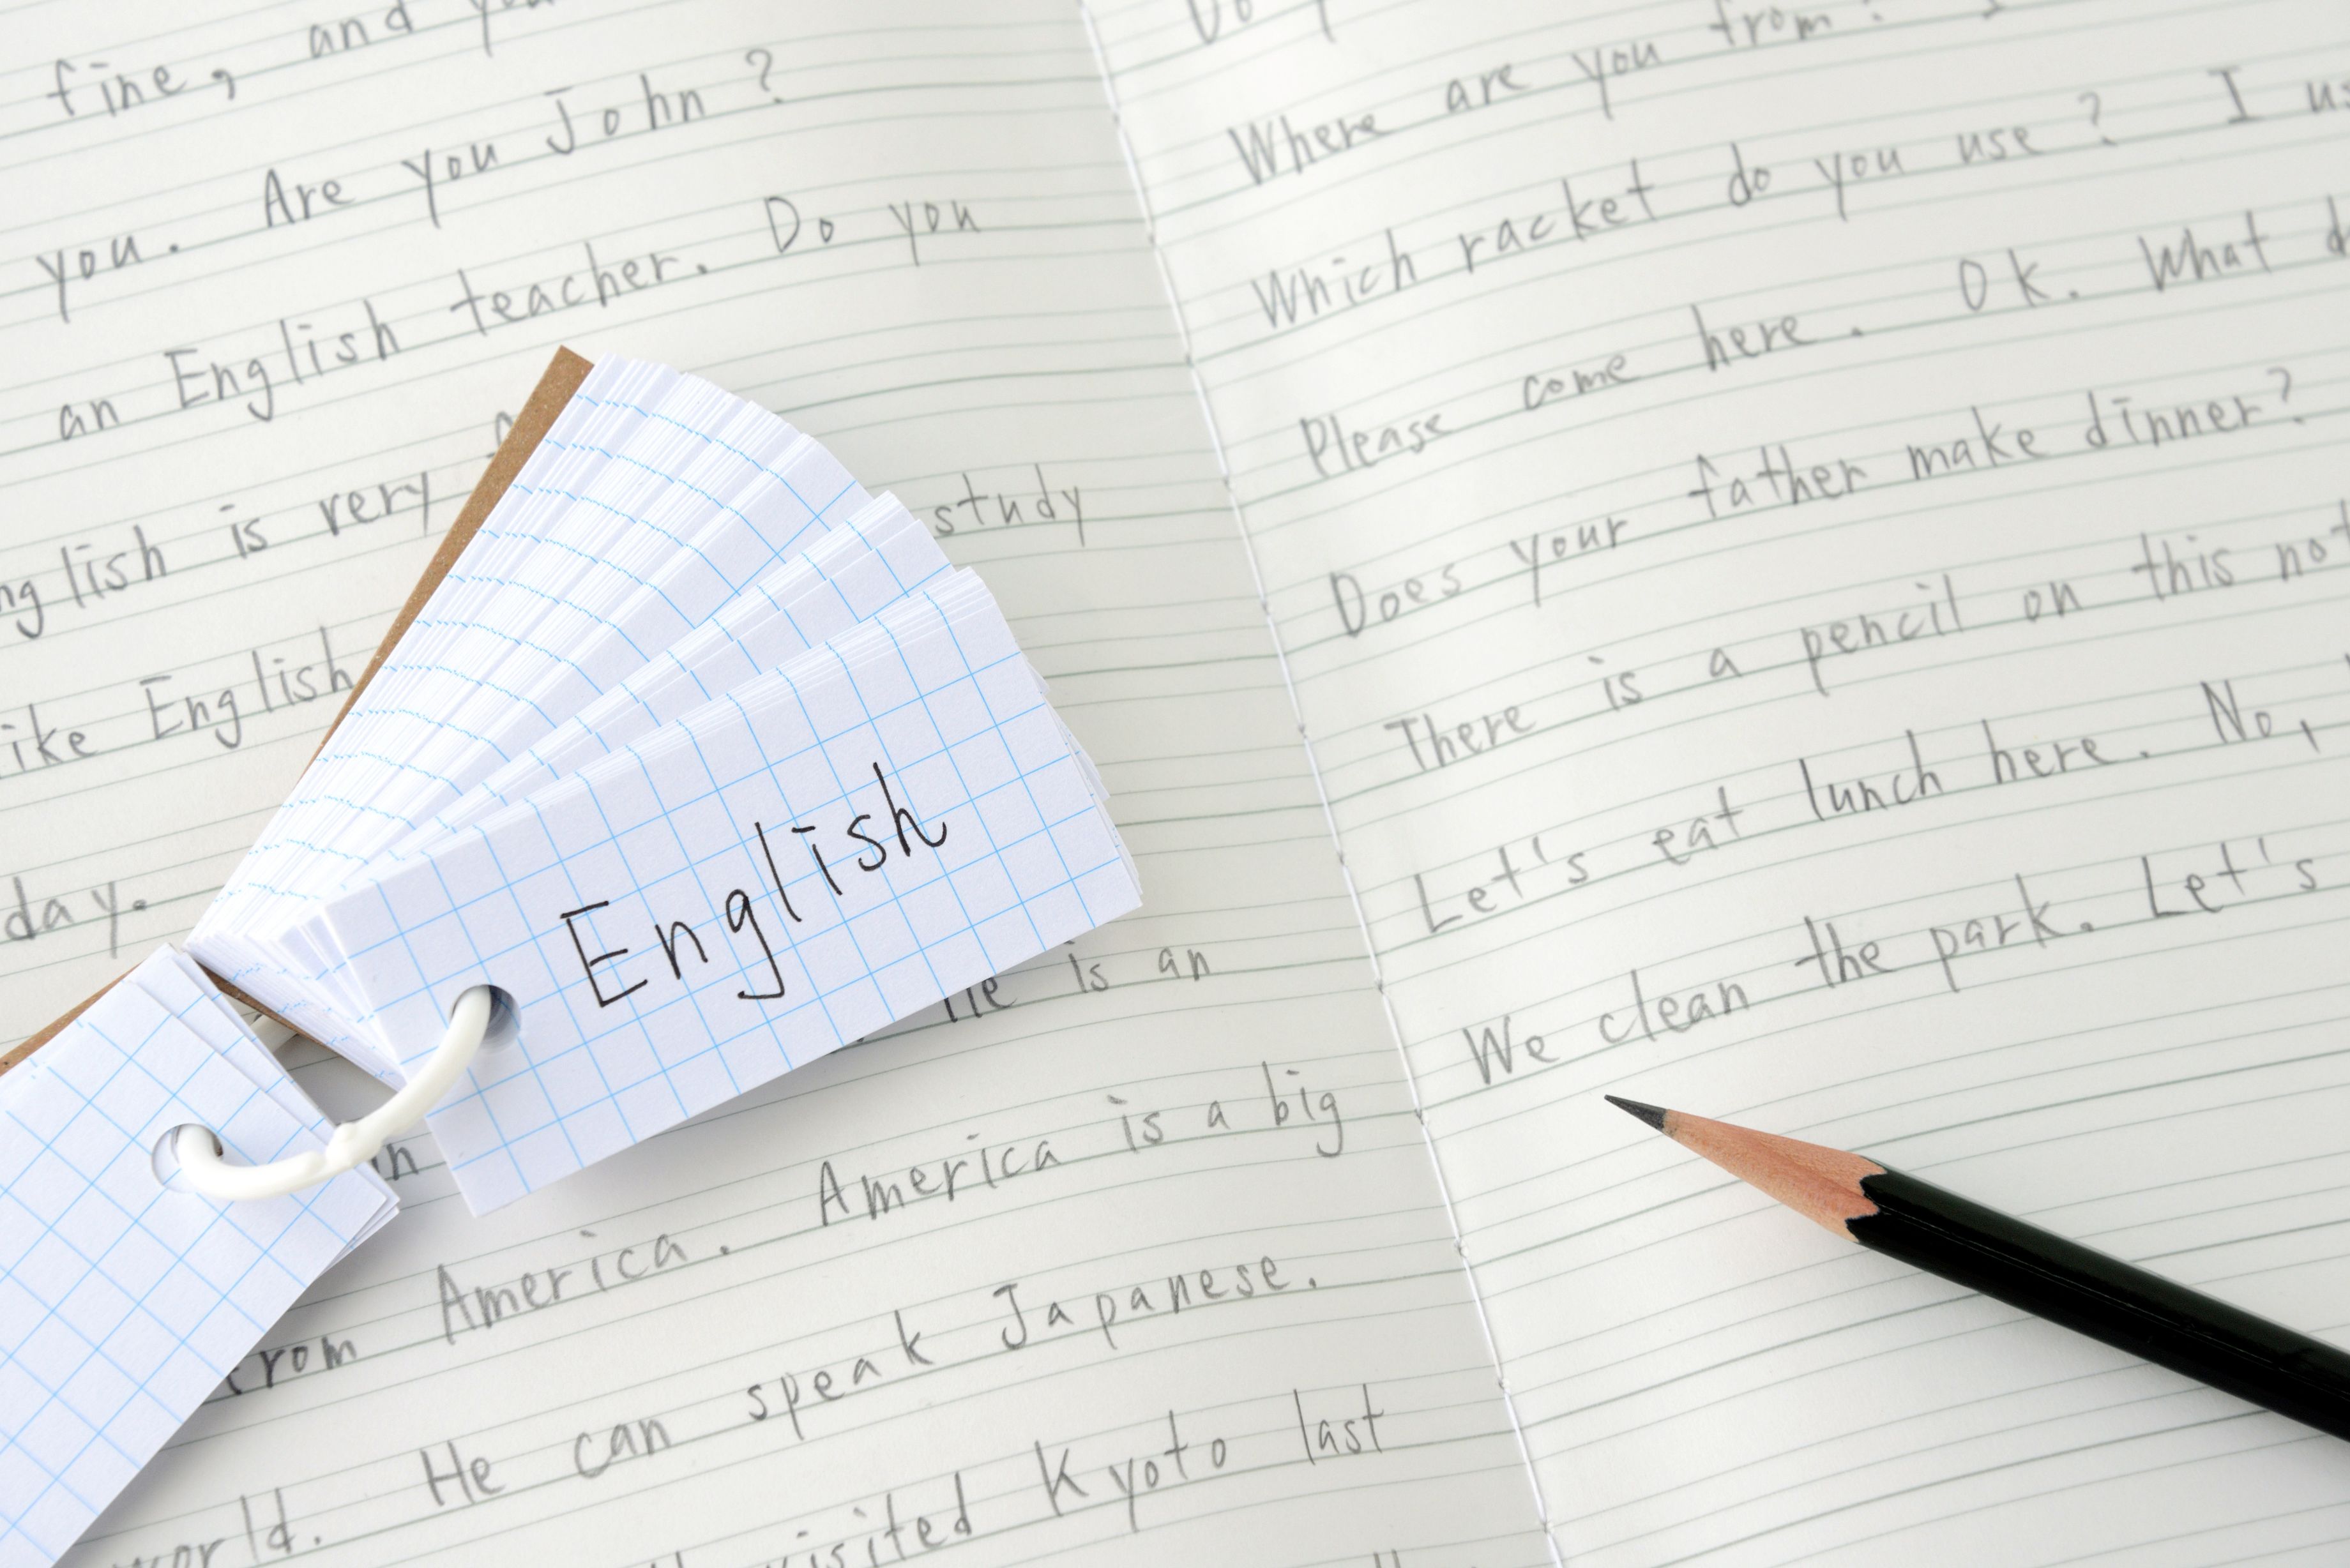 fine, and you
you. Are you John?
an English teacher. Do you
is very
study
like English
day.
English
He is an
from America. America is a big
world. He can speak Japanese.
visited Kyoto last
Where are you from?
Which racket do you use? I
Please come here. Ok. What
Does your father make dinner?
There is a pencil on this
Let's eat lunch here. No,
We clean the park. Let's